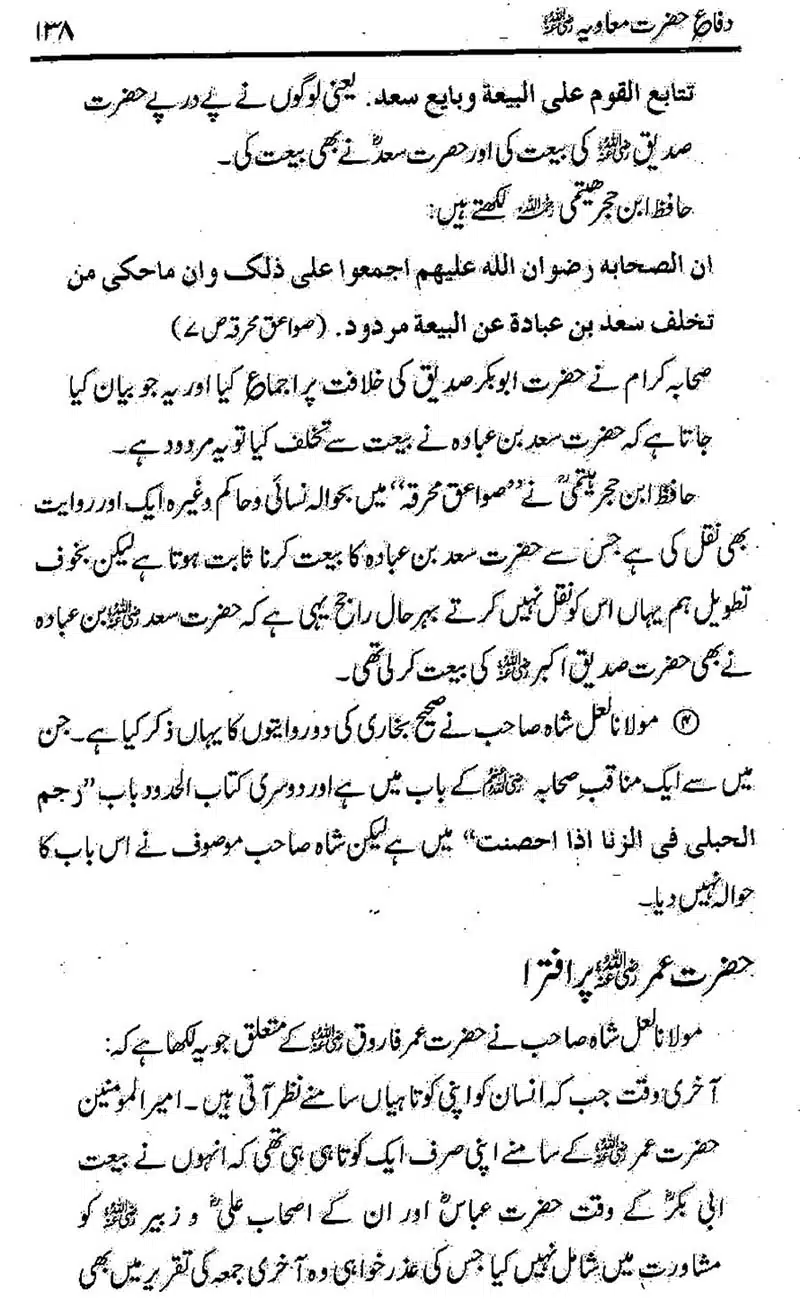 دفاع حضرت معاویہ رضی اللہ عنہ ۱۳۸
تتابع القوم علی البیعة وبایع سعد. یعنی لوگوں نے پے در پے حضرت
صدیق رضی اللہ عنہ کی بیعت کی اور حضرت سعدؓ نے بھی بیعت کی۔
حافظ ابن حجر ھیتمی رحمہ اللہ لکھتے ہیں:
ان الصحابه رضوان الله علیهم اجمعوا علی ذلک وان ماحکی من
تخلف سعد بن عبادة عن البیعة مردود. (صواعق محرقہ ص ۷)
صحابہ کرام نے حضرت ابوبکر صدیق کی خلافت پر اجماع کیا اور یہ جو بیان کیا
جاتا ہے کہ حضرت سعد بن عبادہ نے بیعت سے تخلف کیا تو یہ مردود ہے۔
حافظ ابن حجر ہیتمیؒ نے ”صواعق محرقہ“ میں بحوالہ نسائی وحاکم وغیرہ ایک اور روایت
بھی نقل کی ہے جس سے حضرت سعد بن عبادہ کا بیعت کرنا ثابت ہوتا ہے لیکن بخوف
تطویل ہم یہاں اس کو نقل نہیں کرتے بہر حال راجح یہی ہے کہ حضرت سعد رضی اللہ عنہ بن عبادہ
نے بھی حضرت صدیق اکبر رضی اللہ عنہ کی بیعت کر لی تھی۔
④ مولانا لعل شاہ صاحب نے صحیح بخاری کی دو روایتوں کا یہاں ذکر کیا ہے۔ جن
میں سے ایک مناقب صحابہ رضی اللہ عنہم کے باب میں ہے اور دوسری کتاب الحدود باب ”رجم
الحبلی فی الزنا اذا احصنت“ میں ہے لیکن شاہ صاحب موصوف نے اس باب کا
حوالہ نہیں دیا۔
حضرت عمر رضی اللہ عنہ پر افترا
مولانا لعل شاہ صاحب نے حضرت عمر فاروق رضی اللہ عنہ کے متعلق جو یہ لکھا ہے کہ:
آخری وقت جب کہ انسان کو اپنی کوتاہیاں سامنے نظر آتی ہیں۔ امیر المومنین
حضرت عمر رضی اللہ عنہ کے سامنے اپنی صرف ایک کوتاہی ہی تھی کہ انہوں نے بیعت
ابی بکرؓ کے وقت حضرت عباسؓ اور ان کے اصحاب علیؓ و زبیر رضی اللہ عنہ کو
مشاورت میں شامل نہیں کیا جس کی عذر خواہی وہ آخری جمعہ کی تقریر میں بھی